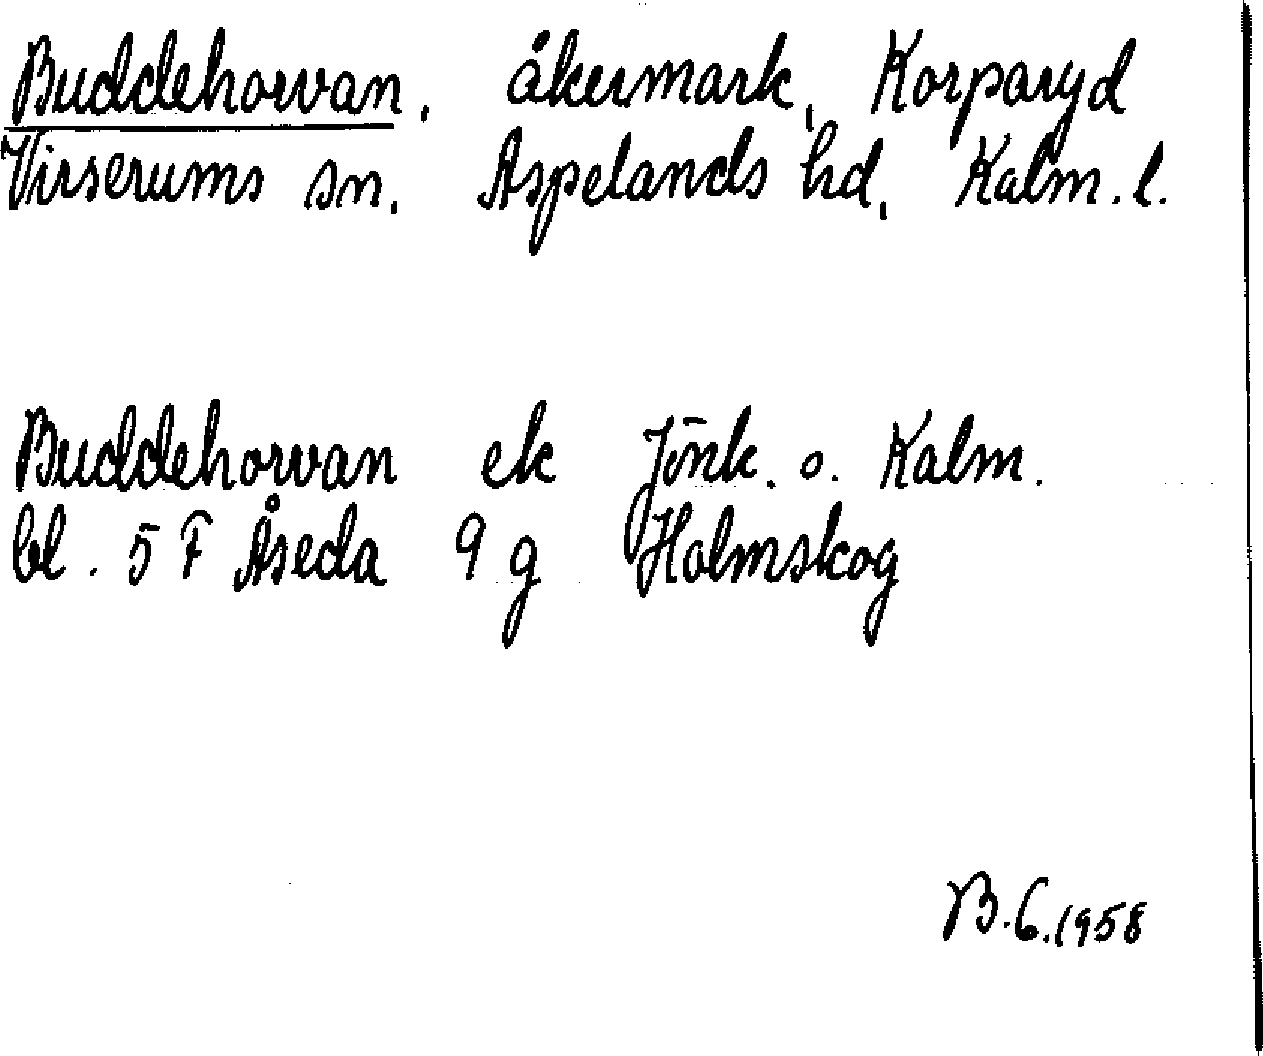 Buddehorvan, åkermark, Korparyd
Virserums sn, Aspelands hd, Kalm. l.
Buddehorvan ek Jönk. o. Kalm.
bl. 5 F Åseda 9 g Holmskog
B.G.1958